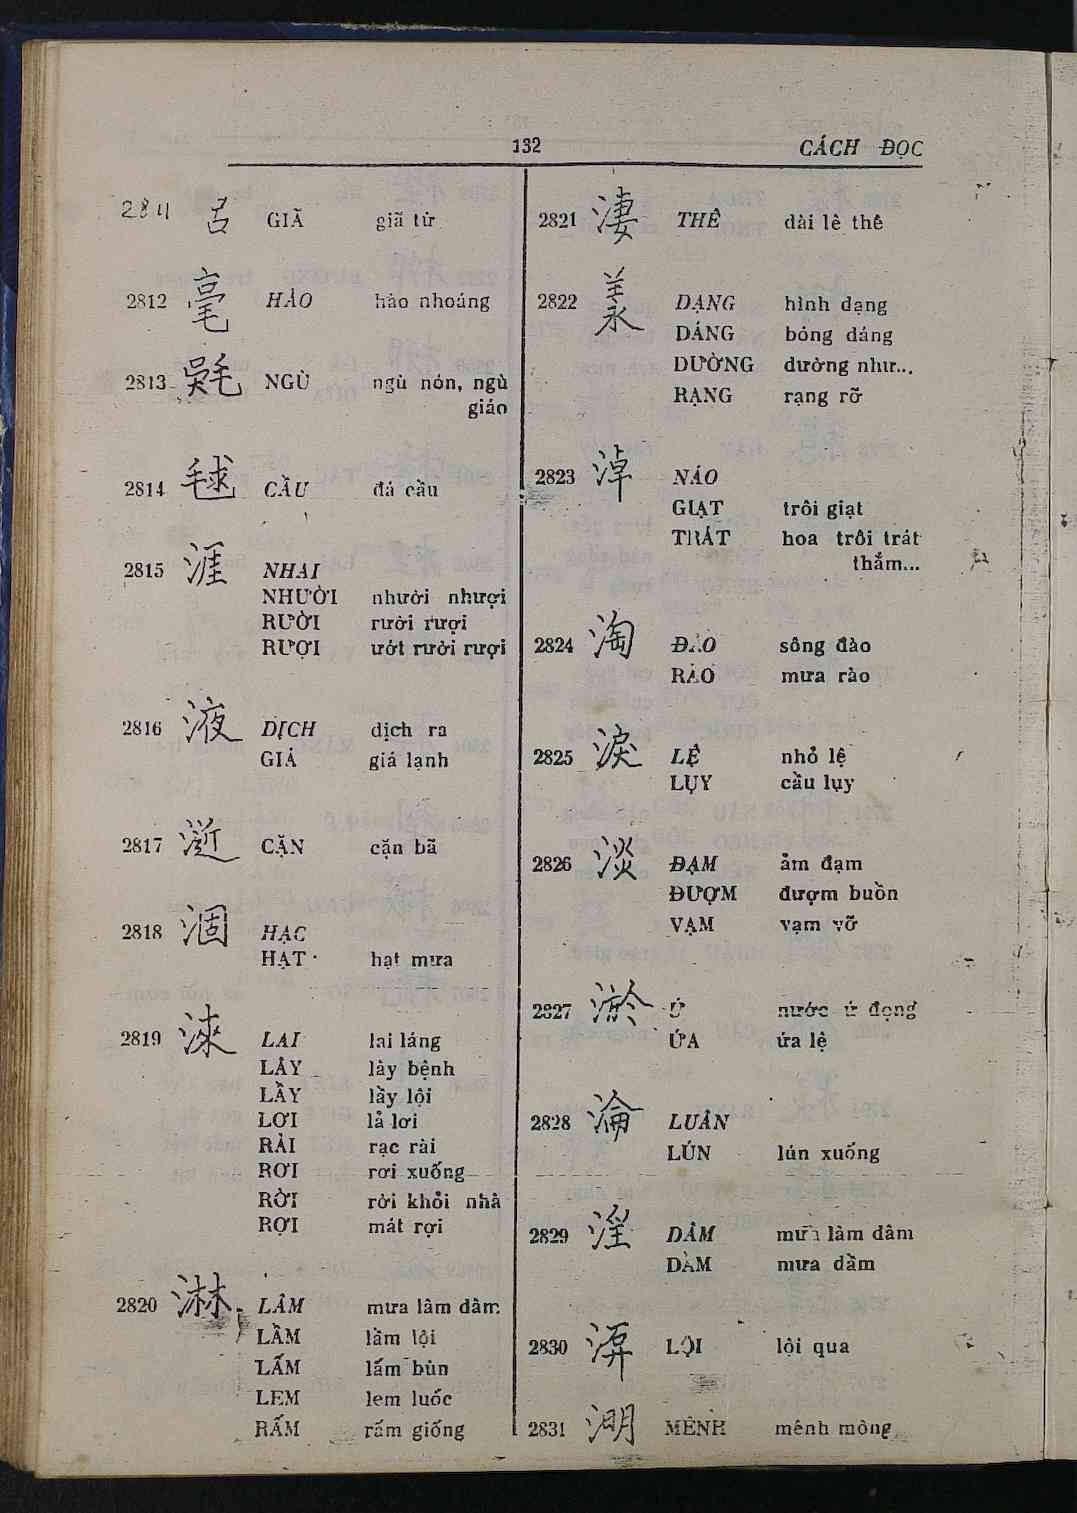 132
CÁCH ĐỌC
2811 GIÃ giã từ
2812 毫 HÀO hào nhoáng
2813 NGÙ ngù nón, ngù
giáo
2814 毬 CẦU đá cầu
2815 涯 NHAI
NHƯỜI nhười nhượi
RƯỜI rười rượi
RƯỢI ướt rười rượi
2816 液 DỊCH dịch ra
GIÁ giá lạnh
2817 CẶN cặn bã
2818 涸 HẠC
HẠT hạt mưa
2819 淶 LAI lai láng
LÂY lây bệnh
LẦY lầy lội
LƠI lả lơi
RÀI rạc rài
RƠI rơi xuống
RỜI rời khỏi nhà
RỢI mát rợi
2820 淋 LÂM mưa lâm dâm
LẦM lầm lội
LẤM lấm bùn
LEM lem luốc
RẤM rấm giống
2821 淒 THÊ dài lê thê
2822 羕 DẠNG hình dạng
DÁNG bóng dáng
DƯỜNG dường như...
RẠNG rạng rỡ
2823 淖 NÁO
GIẠT trôi giạt
TRÁT hoa trôi trát
thắm...
2824 淘 ĐÀO sông đào
RÀO mưa rào
2825 淚 LỆ nhỏ lệ
LỤY cầu lụy
2826 淡 ĐẠM ảm đạm
ĐƯỢM đượm buồn
VẠM vạm vỡ
2827 淤 Ứ nước ứ đọng
ỨA ứa lệ
2828 淪 LUÂN
LÚN lún xuống
2829 淫 DÂM mưa lâm dâm
DẦM mưa dầm
2830 LỘI lội qua
2831 MÊNH mênh mông